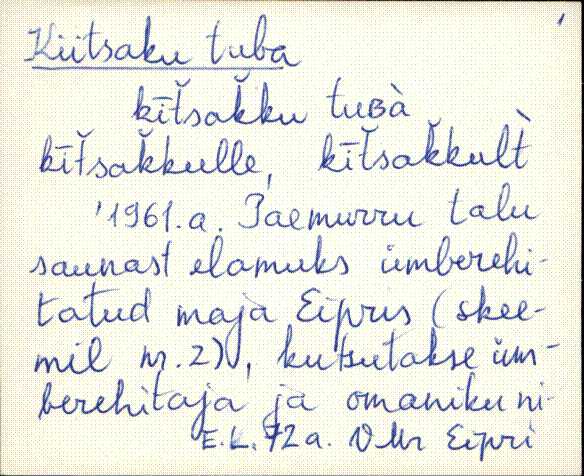 Kiitsaku tuba
kīt̆sak̆ku tuʙà
kīt̆sak̆kulle, kīt̆sak̆kult̀
'1961.a. Paemurru talu
saunast elamuks ümberehi-
tatud maja Eipris (skee-
mil nr.2), kutsutakse üm-
berehitaja ja omaniku ni-
E.L. 72 a. VMr Eipri